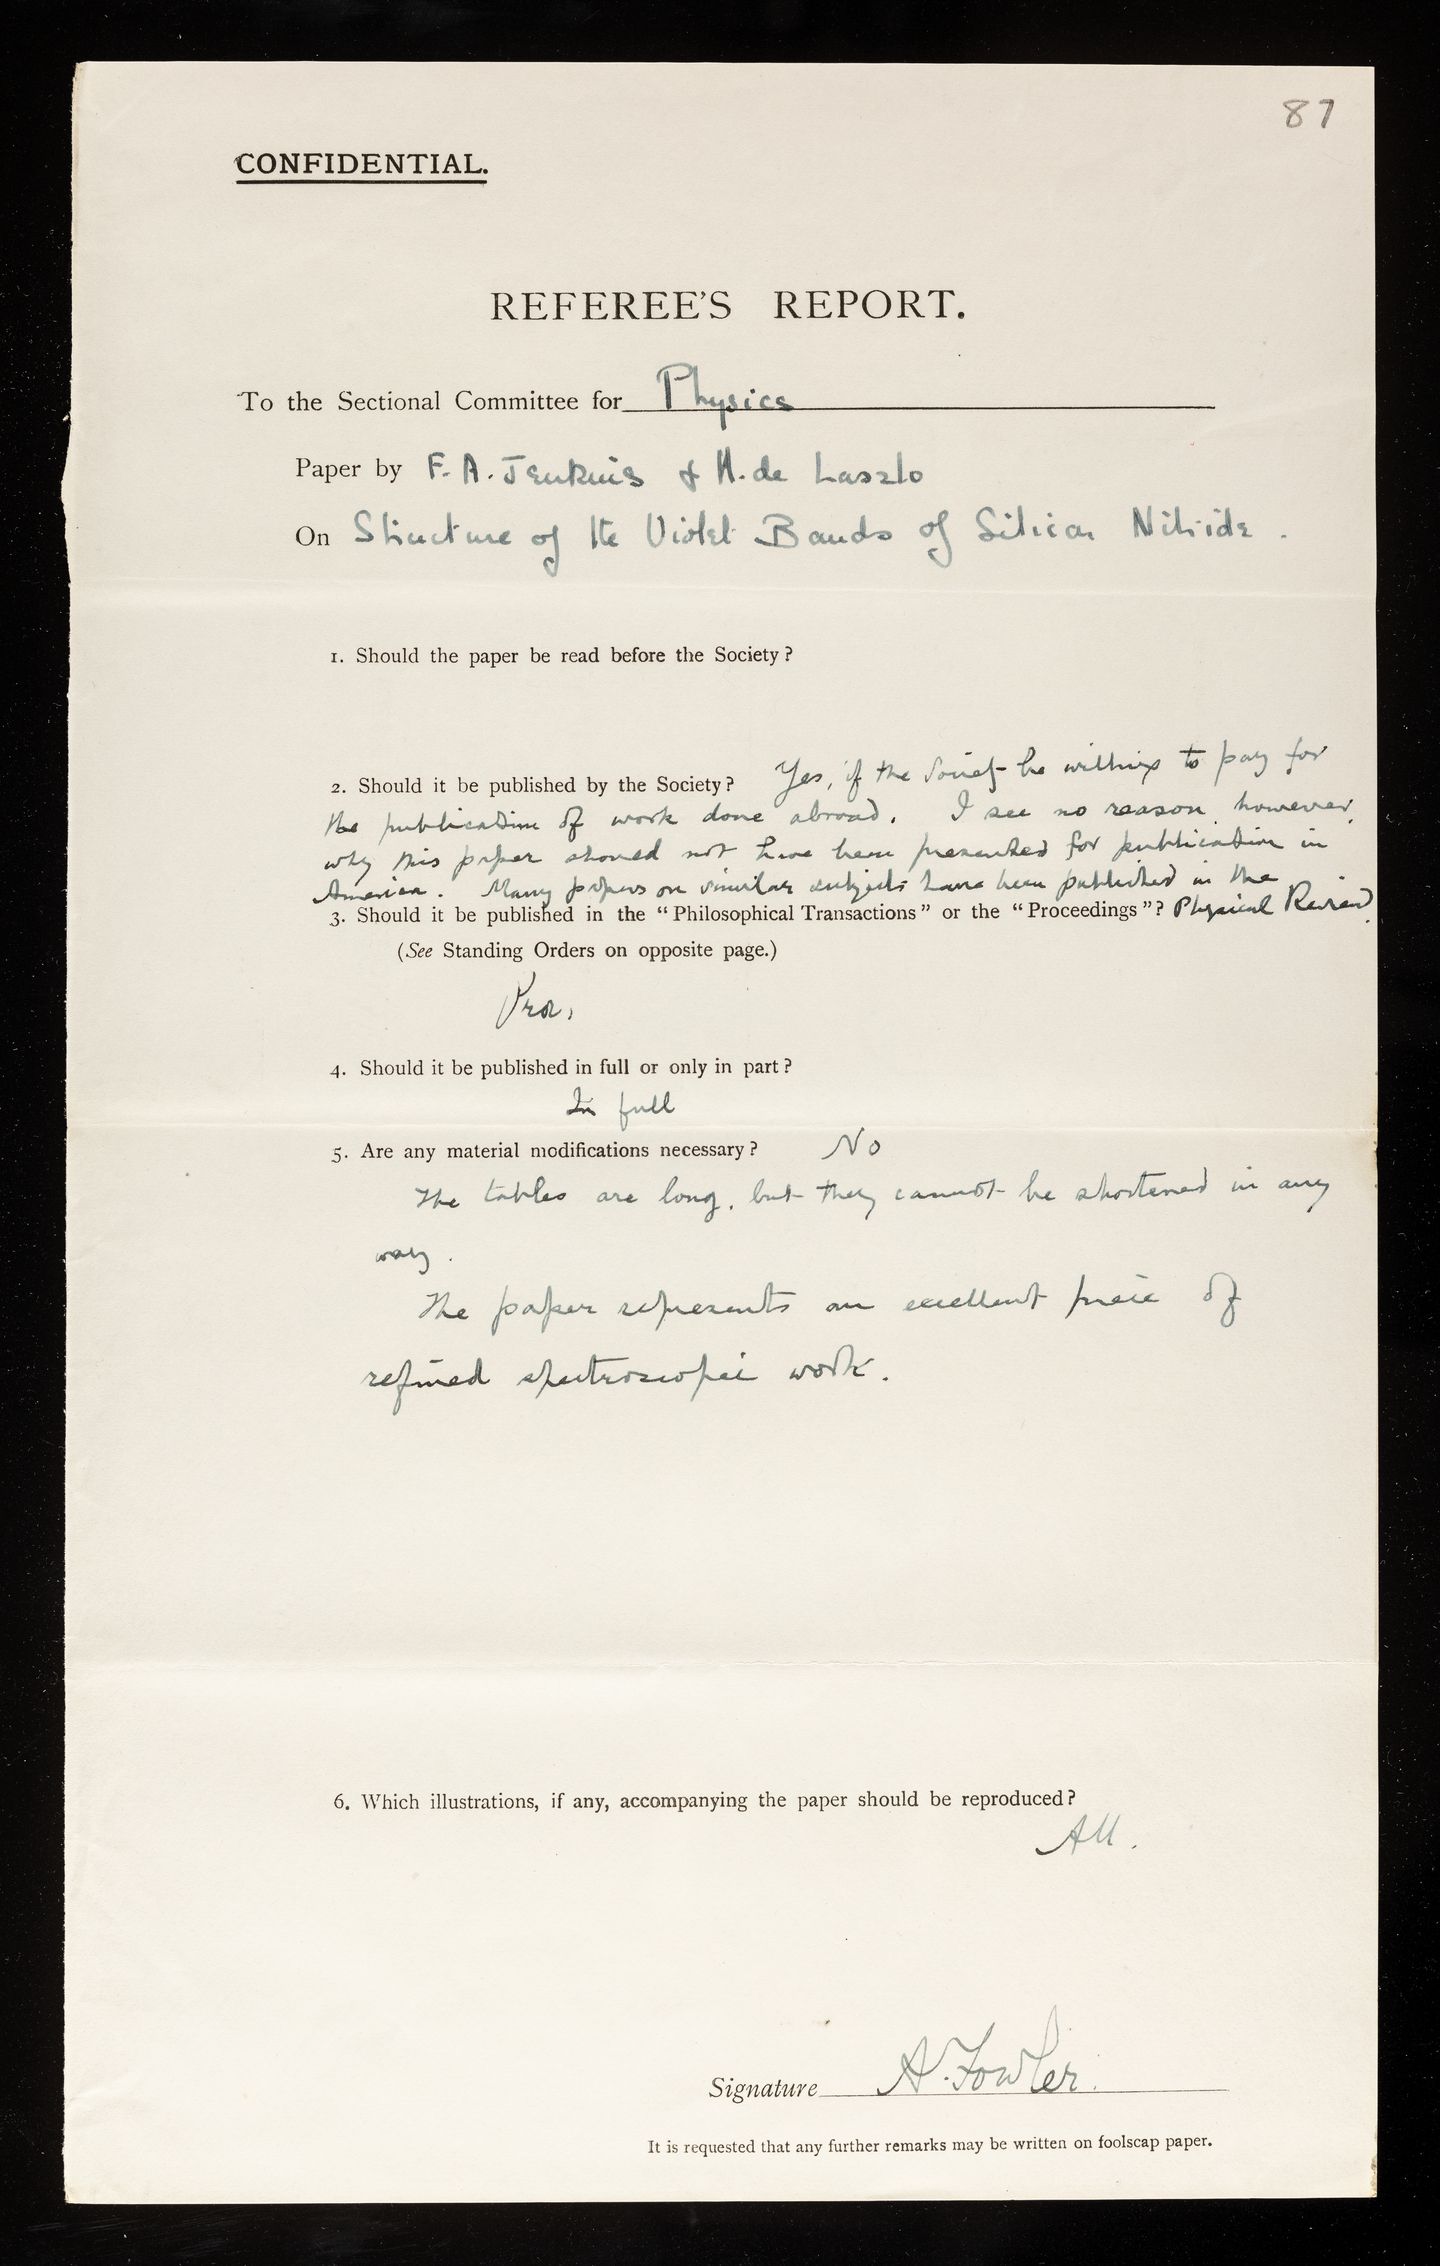 87
CONFIDENTIAL.
REFEREE'S REPORT.
To the Sectional Committee for Physics
Paper by F. A. Jenkins & H. de Laszlo
On Structure of the Violet Bands of Silicon Nitride.
1. Should the paper be read before the Society?
2. Should it be published by the Society? Yes, if the Society be willing to pay for
the publication of work done abroad. I see no reason, however,
why this paper should not have been presented for publication in
America. Many papers on similar subjects have been published in the
3. Should it be published in the "Philosophical Transactions" or the "Proceedings"? Physical Review.
(See Standing Orders on opposite page.)
Proc.
4. Should it be published in full or only in part?
In full
5. Are any material modifications necessary? No
The tables are long, but they cannot be shortened in any
way.
The paper represents an excellent piece of
refined spectroscopic work.
6. Which illustrations, if any, accompanying the paper should be reproduced?
All.
Signature A. Fowler.
It is requested that any further remarks may be written on foolscap paper.